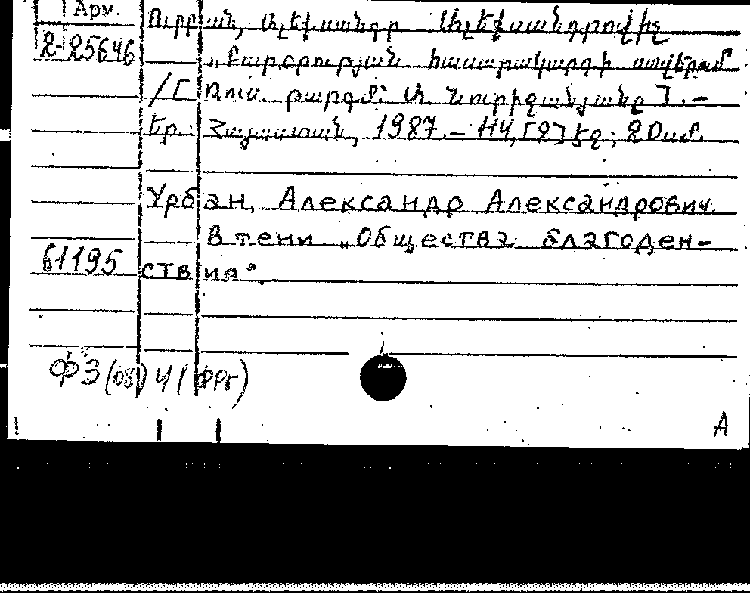 Арм.
Ուրբան, Ալեքսանդր Ալեքսանդրովիչ
2-25646
„Բարօրության հասարակարգի ստվերում
/[Ռուս. թարգմ. Ա. Նուրիջանյանը]. –
Եր.: Հայաստան, 1987. – 114, [2] էջ; 20 սմ.
Урбан, Александр Александрович
В тени „Общества благоден-
61195
ствия“.
ФЗ(08)4(ФРГ)
А